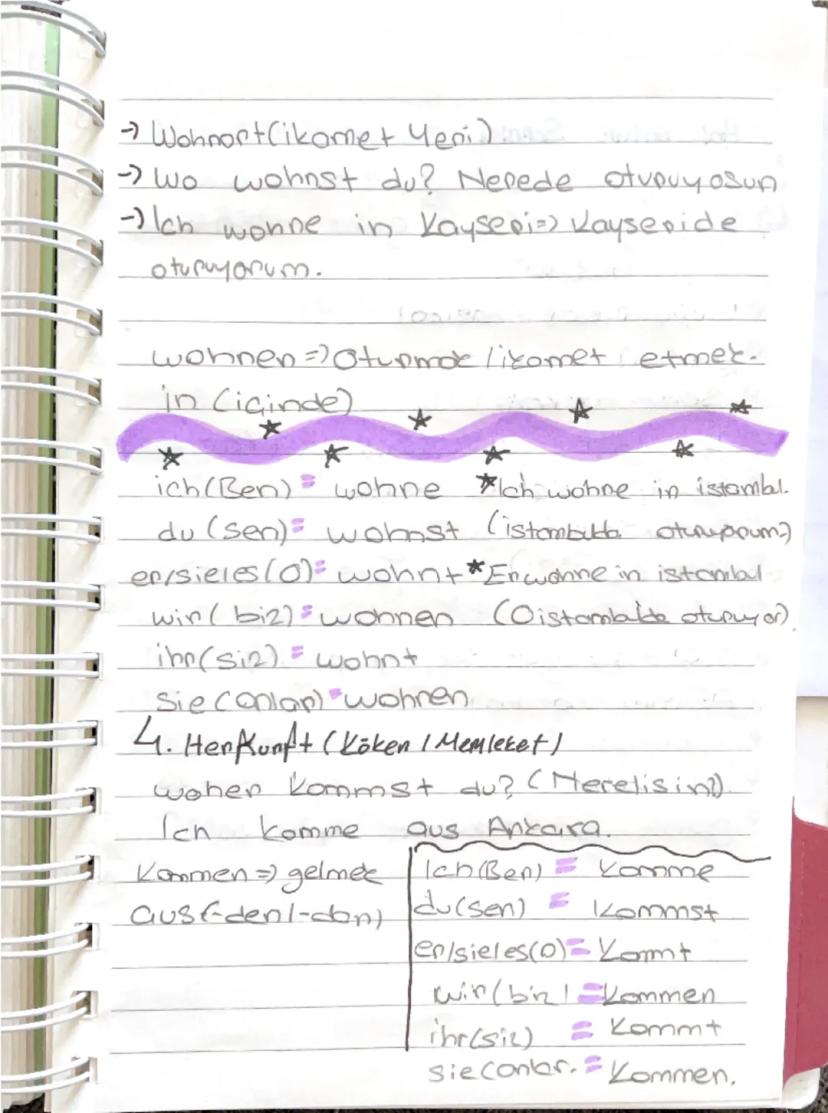 → Wohnort (ikamet Yeri)
→ Wo wohnst du? Nerede oturuyosun
→ Ich wohne in Kayseri => Kayseride
oturuyorum.
wohnen => Oturmak / ikamet etmek.
in (içinde)
ich (Ben) = wohne *Ich wohne in istambul.
du (sen) = wohnst (istambulda oturuyorum)
er/sie/es (O) = wohnt *Er wohne in istambul
wir (biz) = wohnen (O istambulda oturuyor)
ihr (siz) = wohnt
sie (onlar) = wohnen
4. Herkunft (Köken / Memleket)
woher kommst du? (Nerelisin?)
Ich komme aus Ankara.
kommen => gelmek
aus (-den / -dan)
Ich (Ben) = komme
du (sen) = kommst
er/sie/es (O) = kommt
wir (biz) = kommen
ihr (siz) = kommt
sie (onlar. = kommen.